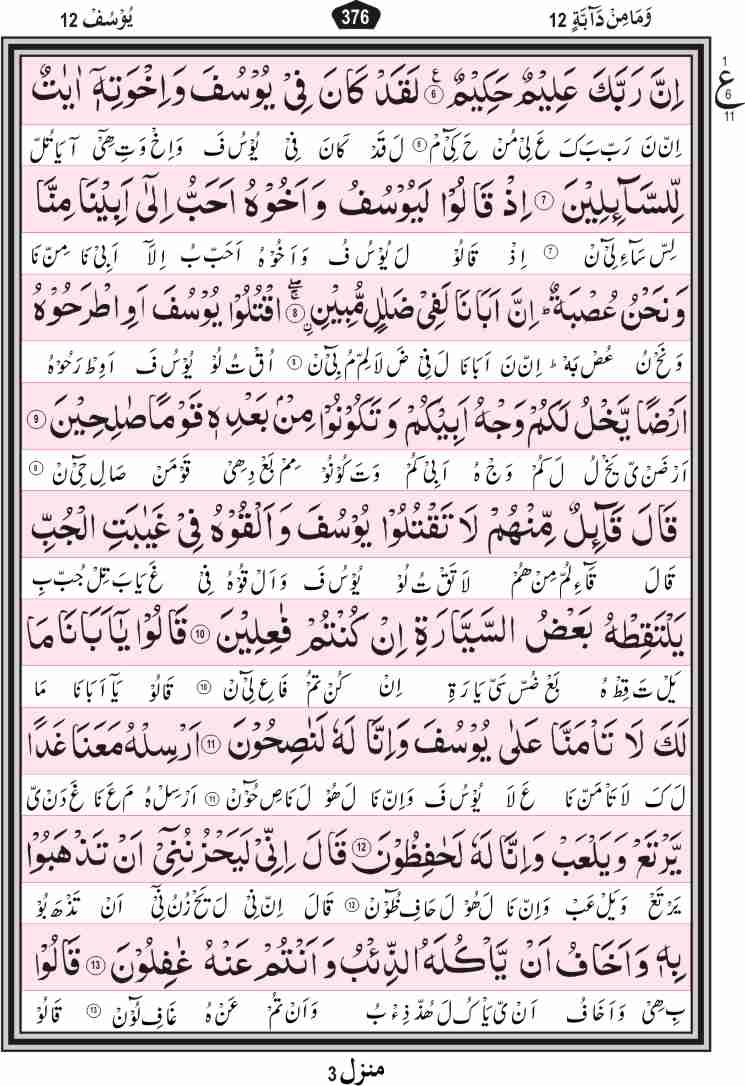 وَمَا مِنْ دَآبَّةٍ 12
376
يُوْسُفْ 12
1
ع
6
11
اِنَّ رَبَّكَ عَلِيْمٌ حَكِيْمٌ ۶ لَقَدْ كَانَ فِىْ يُوْسُفَ وَاِخْوَتِهٖٓ اٰيٰتٌ
اِنْ نَ رَبْ بَ كَ عَ لِىْ مُنْ حَ كِىْ مْ ۶ لَ قَدْ كَانَ فِىْ يُوْ سُ فَ وَ اِخْ وَ تِ هِىْٓ آ يَا تُلّ
لِّلسَّآئِلِيْنَ ۷ اِذْ قَالُوْا لَيُوْسُفُ وَاَخُوْهُ اَحَبُّ اِلٰٓى اَبِيْنَا مِنَّا
لِسْ سَآءِ لِىْٓ نْ ۷ اِذْ قَالُوْ لَ يُوْ سُ فُ وَ اَ خُوْ هُ اَ حَبْ بُ اِ لَآ اَ بِىْ نَا مِنْ نَا
وَنَحْنُ عُصْبَةٌ ؕ اِنَّ اَبَانَا لَفِىْ ضَلٰلٍ مُّبِيْنِ ۸ اۨقْتُلُوْا يُوْسُفَ اَوِ اطْرَحُوْهُ
وَ نَحْ نُ عُصْ بَهْ ؕ اِنْ نَ اَ بَا نَا لَ فِىْ ضَ لَا لِمْ مُ بِىْٓ نْ ۸ اُقْ تُ لُوْ يُوْ سُ فَ اَ وِطْ رَ حُوْ هُ
اَرْضًا يَّخْلُ لَكُمْ وَجْهُ اَبِيْكُمْ وَتَكُوْنُوْا مِنْۢ بَعْدِهٖ قَوْمًا صٰلِحِيْنَ 9
اَرْ ضَنْ ىْ يَخْ لُ لَ كُمْ وَجْ هُ اَ بِىْ كُمْ وَ تَ كُوْ نُوْ مِمْ بَعْ دِهِىْ قَوْ مَنْ صَا لِ حِىْٓ نْ 9
قَالَ قَآئِلٌ مِّنْهُمْ لَا تَقْتُلُوْا يُوْسُفَ وَاَلْقُوْهُ فِىْ غَيٰبَتِ الْجُبِّ
قَالَ قَآءِ لُمْ مِنْ هُمْ لَا تَقْ تُ لُوْ يُوْ سُ فَ وَ اَلْ قُوْ هُ فِىْ غَ يَا بَ تِلْ جُبْ بِ
يَلْتَقِطْهُ بَعْضُ السَّيَّارَةِ اِنْ كُنْتُمْ فٰعِلِيْنَ 10 قَالُوْا يٰٓاَبَانَا مَا
يَلْ تَ قِطْ هُ بَعْ ضُسْ سَىْ يَا رَةِ اِنْ كُنْ تُمْ فَا عِ لِىْٓ نْ 10 قَالُوْ يَآ اَ بَا نَا مَا
لَكَ لَا تَاْمَنَّا عَلٰى يُوْسُفَ وَاِنَّا لَهٗ لَنٰصِحُوْنَ 11 اَرْسِلْهُ مَعَنَا غَدًا
لَ كَ لَا تَاْ مَنْ نَا عَ لَا يُوْ سُ فَ وَ اِنْ نَا لَ هُوْ لَ نَا صِ حُوْٓنْ 11 اَرْ سِلْ هُ مَ عَ نَا غَ دَنْ ىْ
يَّرْتَعْ وَيَلْعَبْ وَاِنَّا لَهٗ لَحٰفِظُوْنَ 12 قَالَ اِنِّىْ لَيَحْزُنُنِىْٓ اَنْ تَذْهَبُوْا
يَرْ تَعْ وَ يَلْ عَبْ وَ اِنْ نَا لَ هُوْ لَ حَا فِ ظُوْٓنْ 12 قَالَ اِنْ نِىْ لَ يَحْ زُنُ نِىْٓ اَنْ تَذْ هَ بُوْ
بِهٖ وَاَخَافُ اَنْ يَّاْكُلَهُ الذِّئْبُ وَاَنْتُمْ عَنْهُ غٰفِلُوْنَ 13 قَالُوْا
بِ هِىْ وَ اَ خَا فُ اَنْ ىْ يَاْ كُ لَ هُذْ ذِءْ بُ وَ اَنْ تُمْ عَنْ هُ غَا فِ لُوْٓنْ 13 قَالُوْ
منزل 3